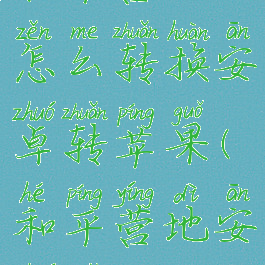 zěn me zhuǎn huàn ān
怎么转换安
zhuó zhuǎn píng guǒ
卓转苹果(
hé píng yíng dì ān
和平营地安